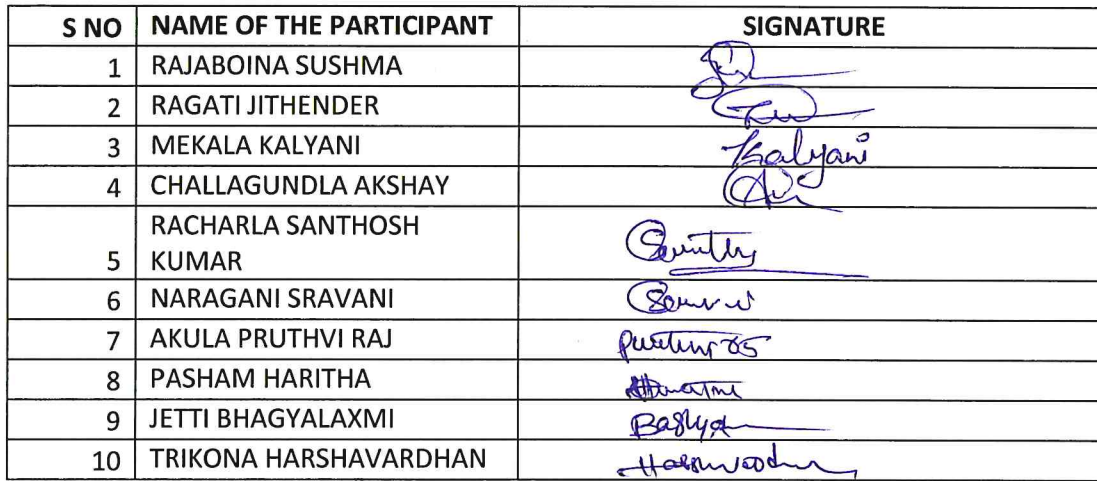 S NO NAME OF THE PARTICIPANT SIGNATURE
1 RAJABOINA SUSHMA
2 RAGATI JITHENDER
3 MEKALA KALYANI Kalyani
4 CHALLAGUNDLA AKSHAY
RACHARLA SANTHOSH
5 KUMAR
6 NARAGANI SRAVANI
7 AKULA PRUTHVI RAJ
8 PASHAM HARITHA
9 JETTI BHAGYALAXMI
10 TRIKONA HARSHAVARDHAN